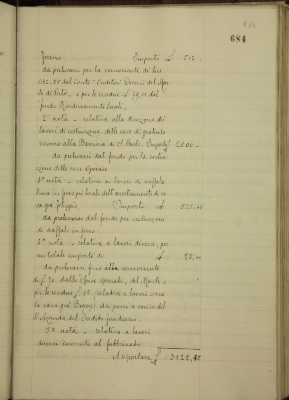 684
Importo £ 512.-
da prelevarsi per la concorrente di lire
del Conto - Creditori Diversi del Mon
te di Pietà, e per le residue £ 29.55 del
fondo Rendimento locali.
2ª nota - relativa alla direzione dei
lavori di costruzione delle case di gratuito
ricovero alla Barriera di S. Paolo. Importo £ 2000.-
da prelevarsi dal fondo per la costru
zione delle case Operaie
3ª nota - relativa ai lavori di scaffala
tura in
Importo £ 525,40
da prelevarsi dal fondo per costruzione
di scaffali in ferro
4ª nota - relativa a lavori diversi, per
un totale importo di £ 85,00
da prelevarsi fino alla concorrente
di £ 70. dalle Spese speciali, del Monte e
per le residue £ 15. relative a lavori
la casa già da porsi a carico del
l'Azienda del Credito fondiario.
5ª nota - relativa a lavori
diversi eseguiti al fabbricato
A riportarsi £ 3122,40